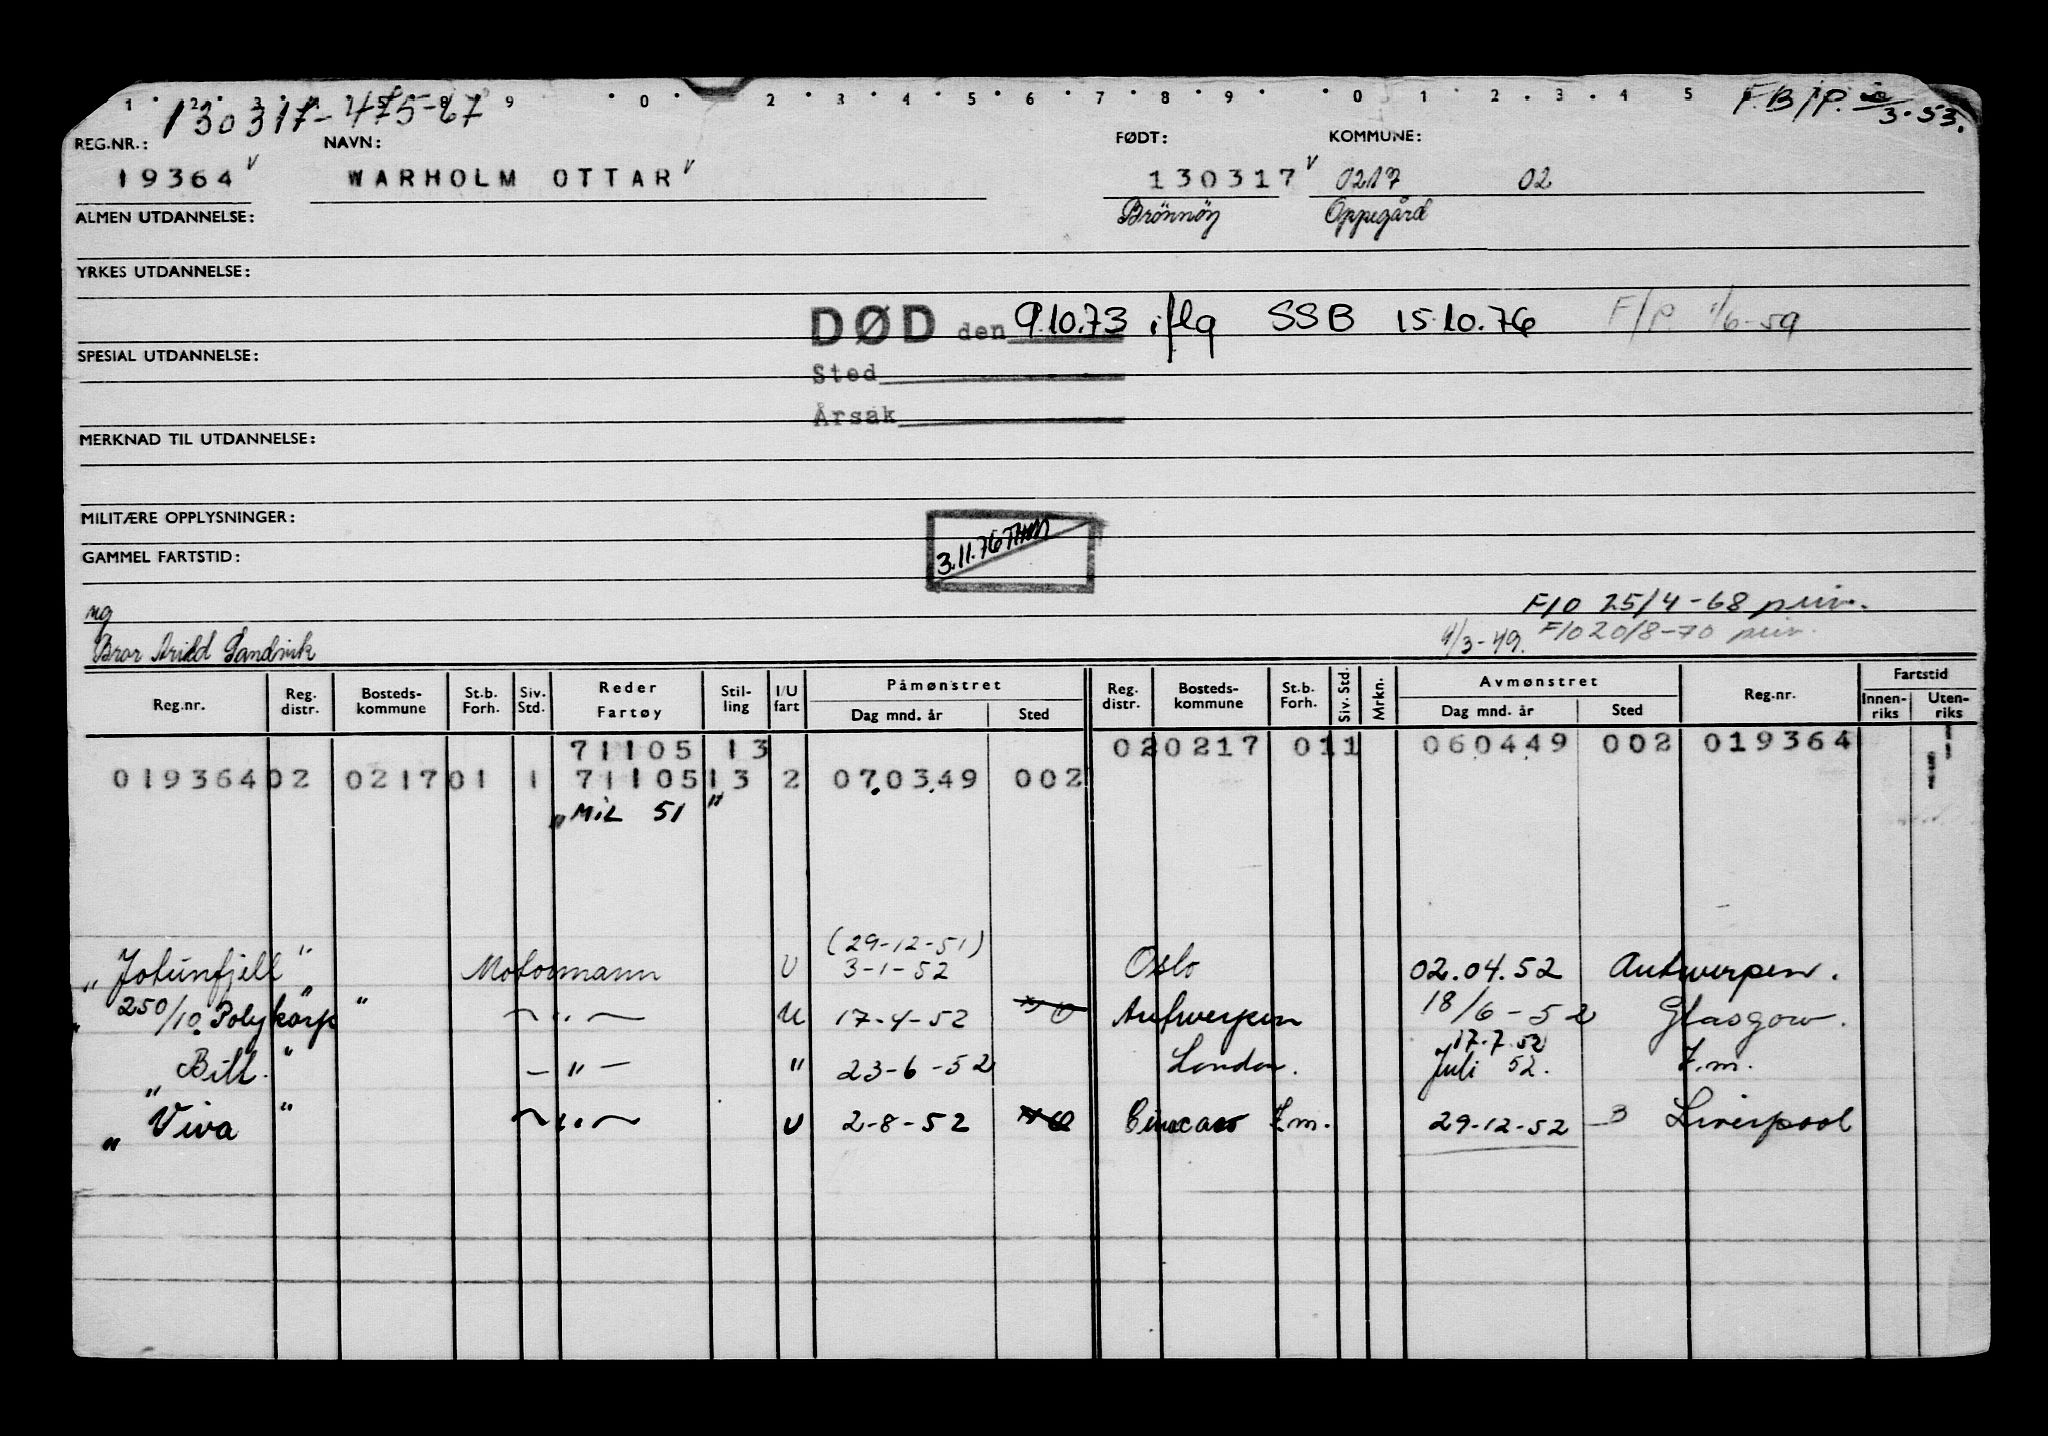 130317-475-67 F.B/P. 3.53.
REG.NR.: NAVN: FØDT: KOMMUNE:
19364 WARHOLM OTTAR 130317 0217 02
ALMEN UTDANNELSE: Brönnöy Oppegård
YRKES UTDANNELSE:
DØD den 9.10.73 iflg SSB 15.10.76 F/P. 1/6-59
SPESIAL UTDANNELSE:
Sted
Årsak
MERKNAD TIL UTDANNELSE:
MILITÆRE OPPLYSNINGER:
3.11.76 THM
GAMMEL FARTSTID:
ng F/O 25/4-68 priv.
Bror Arild Sandvik 9/3-49. F/O 20/8-70 priv.
Reg.nr. Reg. distr. Bosteds- kommune St.b. Forh. Siv. Std. Reder Fartøy Stil- ling I/U fart Påmønstret Dag mnd. år Sted Reg. distr. Bosteds- kommune St.b. Forh. Siv. Std. Mrkn. Avmønstret Dag mnd. år Sted Reg.nr. Fartstid Innen- riks Uten- riks
71105 13 020217 011 060449 002 019364 1
019364 02 0217 01 1 71105 13 2 07.03.49 002 1
"MiL 51"
(29-12-51)
"Jotunfjell" Motormann U 3-1-52 Oslo 02.04.52 Antwerpen.
"250/10 Polykarp" — " — U 17-4-52 Antwerpen 18/6-52 Glasgow.
17.7.52
"Bill." — " — " 23-6-52 London. Juli 52. F.m.
"Viva" — " — U 2-8-52 F.m. 29-12-52 B Liverpool